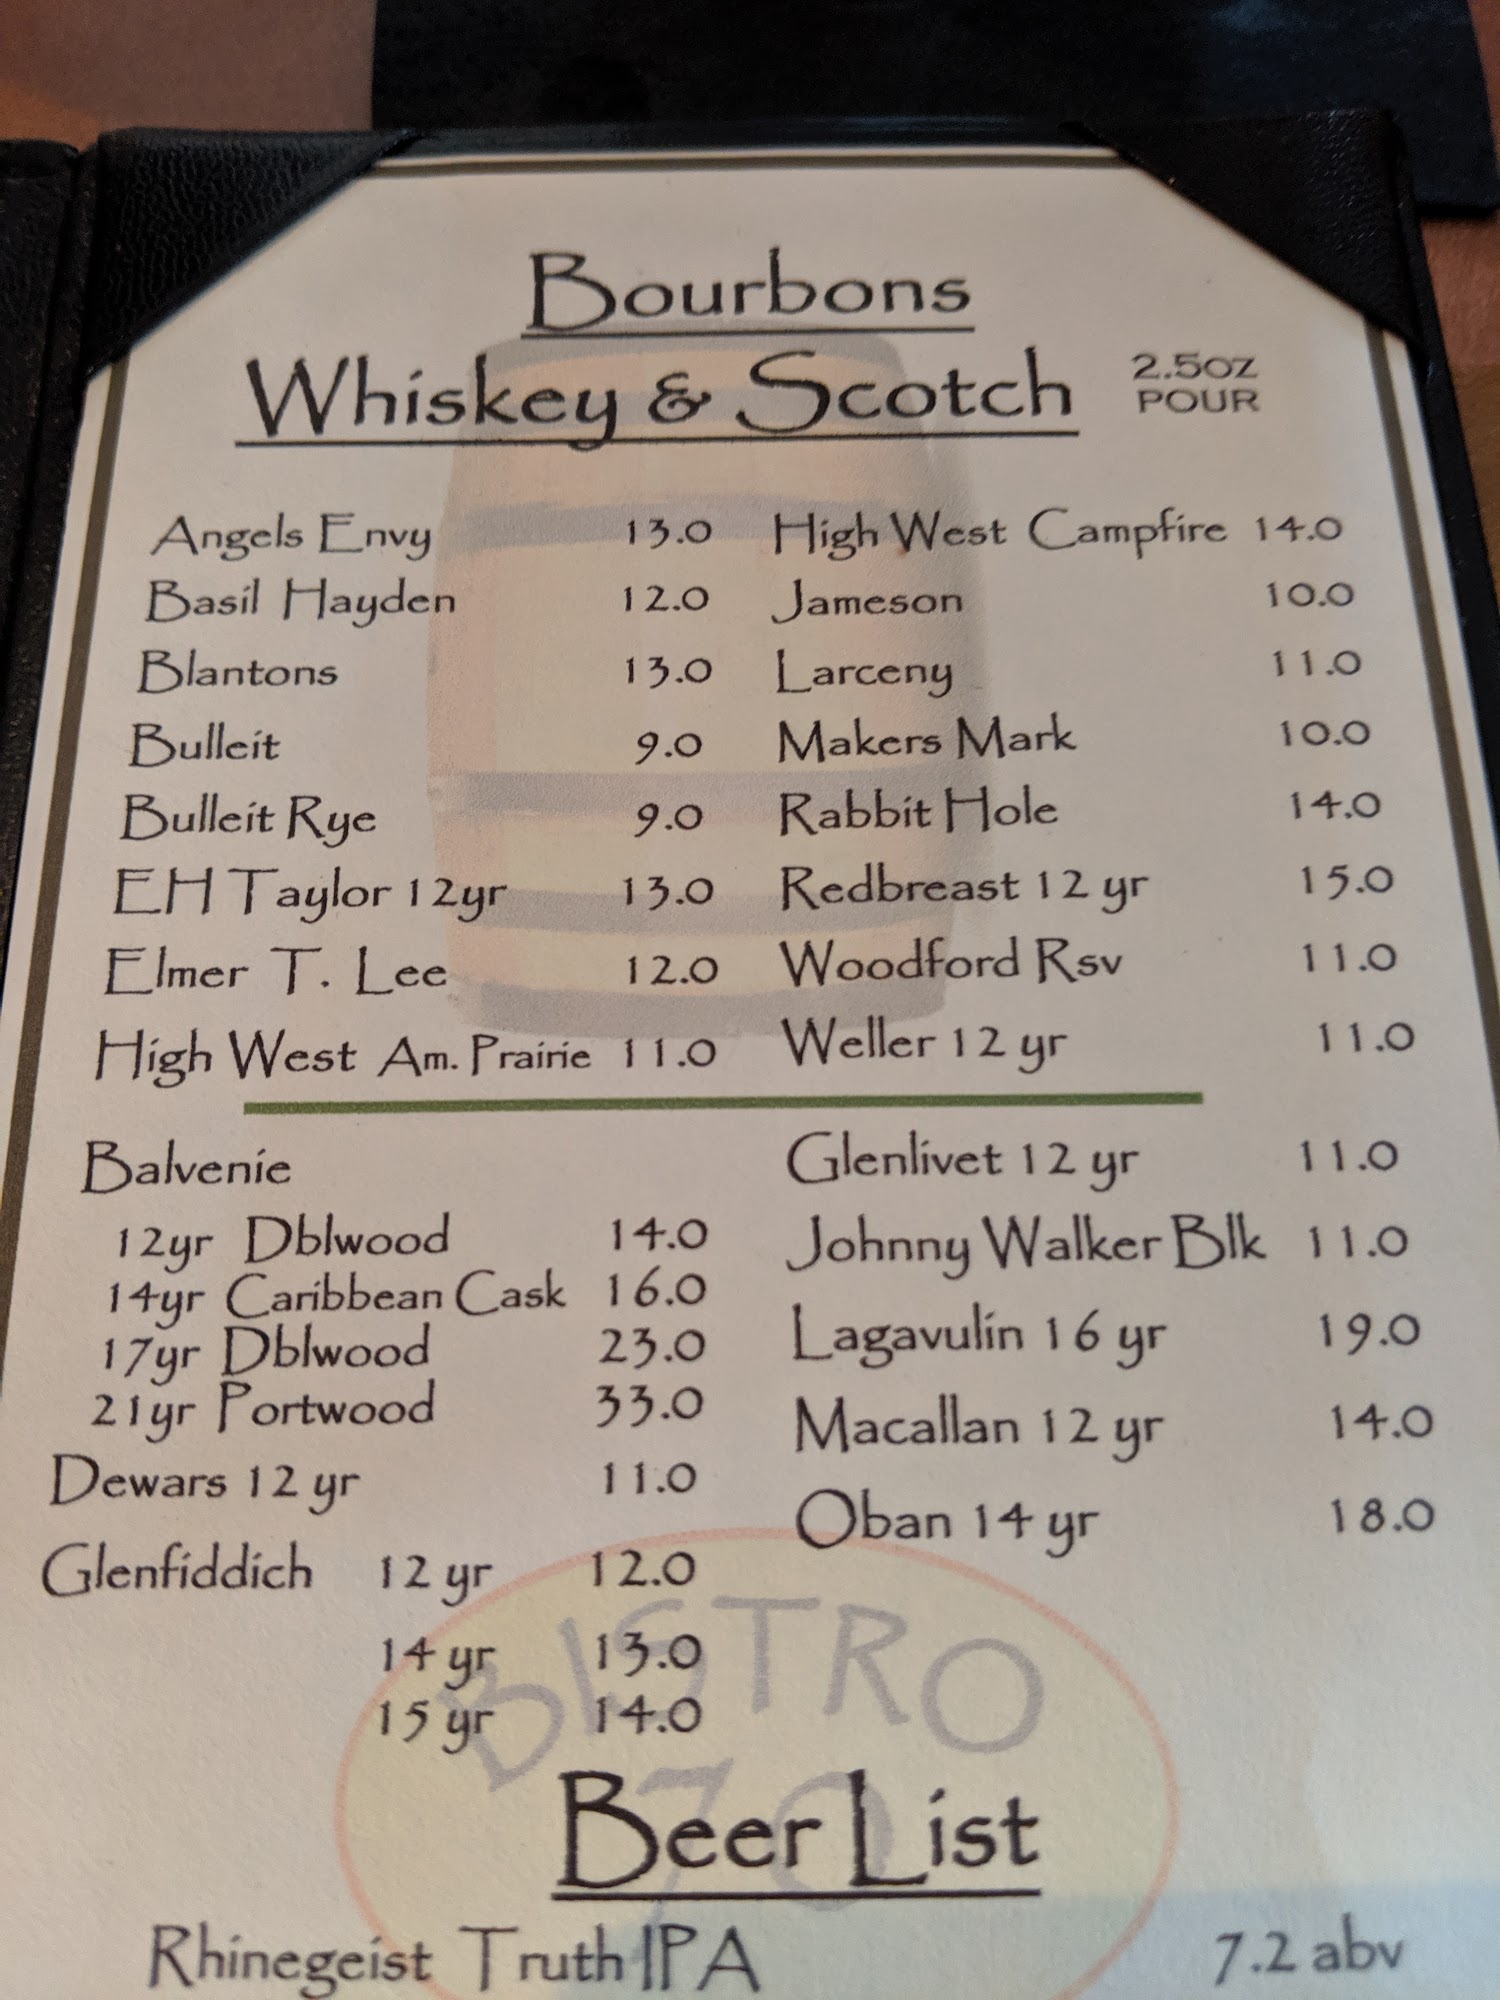 Bourbons
Whiskey & Scotch 2.5oz POUR
Angels Envy 13.0
Basil Hayden 12.0
Blantons 13.0
Bulleit 9.0
Bulleit Rye 9.0
EH Taylor 12yr 13.0
Elmer T. Lee 12.0
High West Am. Prairie 11.0
High West Campfire 14.0
Jameson 10.0
Larceny 11.0
Makers Mark 10.0
Rabbit Hole 14.0
Redbreast 12 yr 15.0
Woodford Rsv 11.0
Weller 12 yr 11.0
Balvenie
12yr Dblwood 14.0
14yr Caribbean Cask 16.0
17yr Dblwood 23.0
21yr Portwood 33.0
Dewars 12 yr 11.0
Glenfiddich 12 yr 12.0
14 yr 13.0
15 yr 14.0
Glenlivet 12 yr 11.0
Johnny Walker Blk 11.0
Lagavulin 16 yr 19.0
Macallan 12 yr 14.0
Oban 14 yr 18.0
BISTRO
70
Beer List
Rhinegeist Truth IPA 7.2 abv